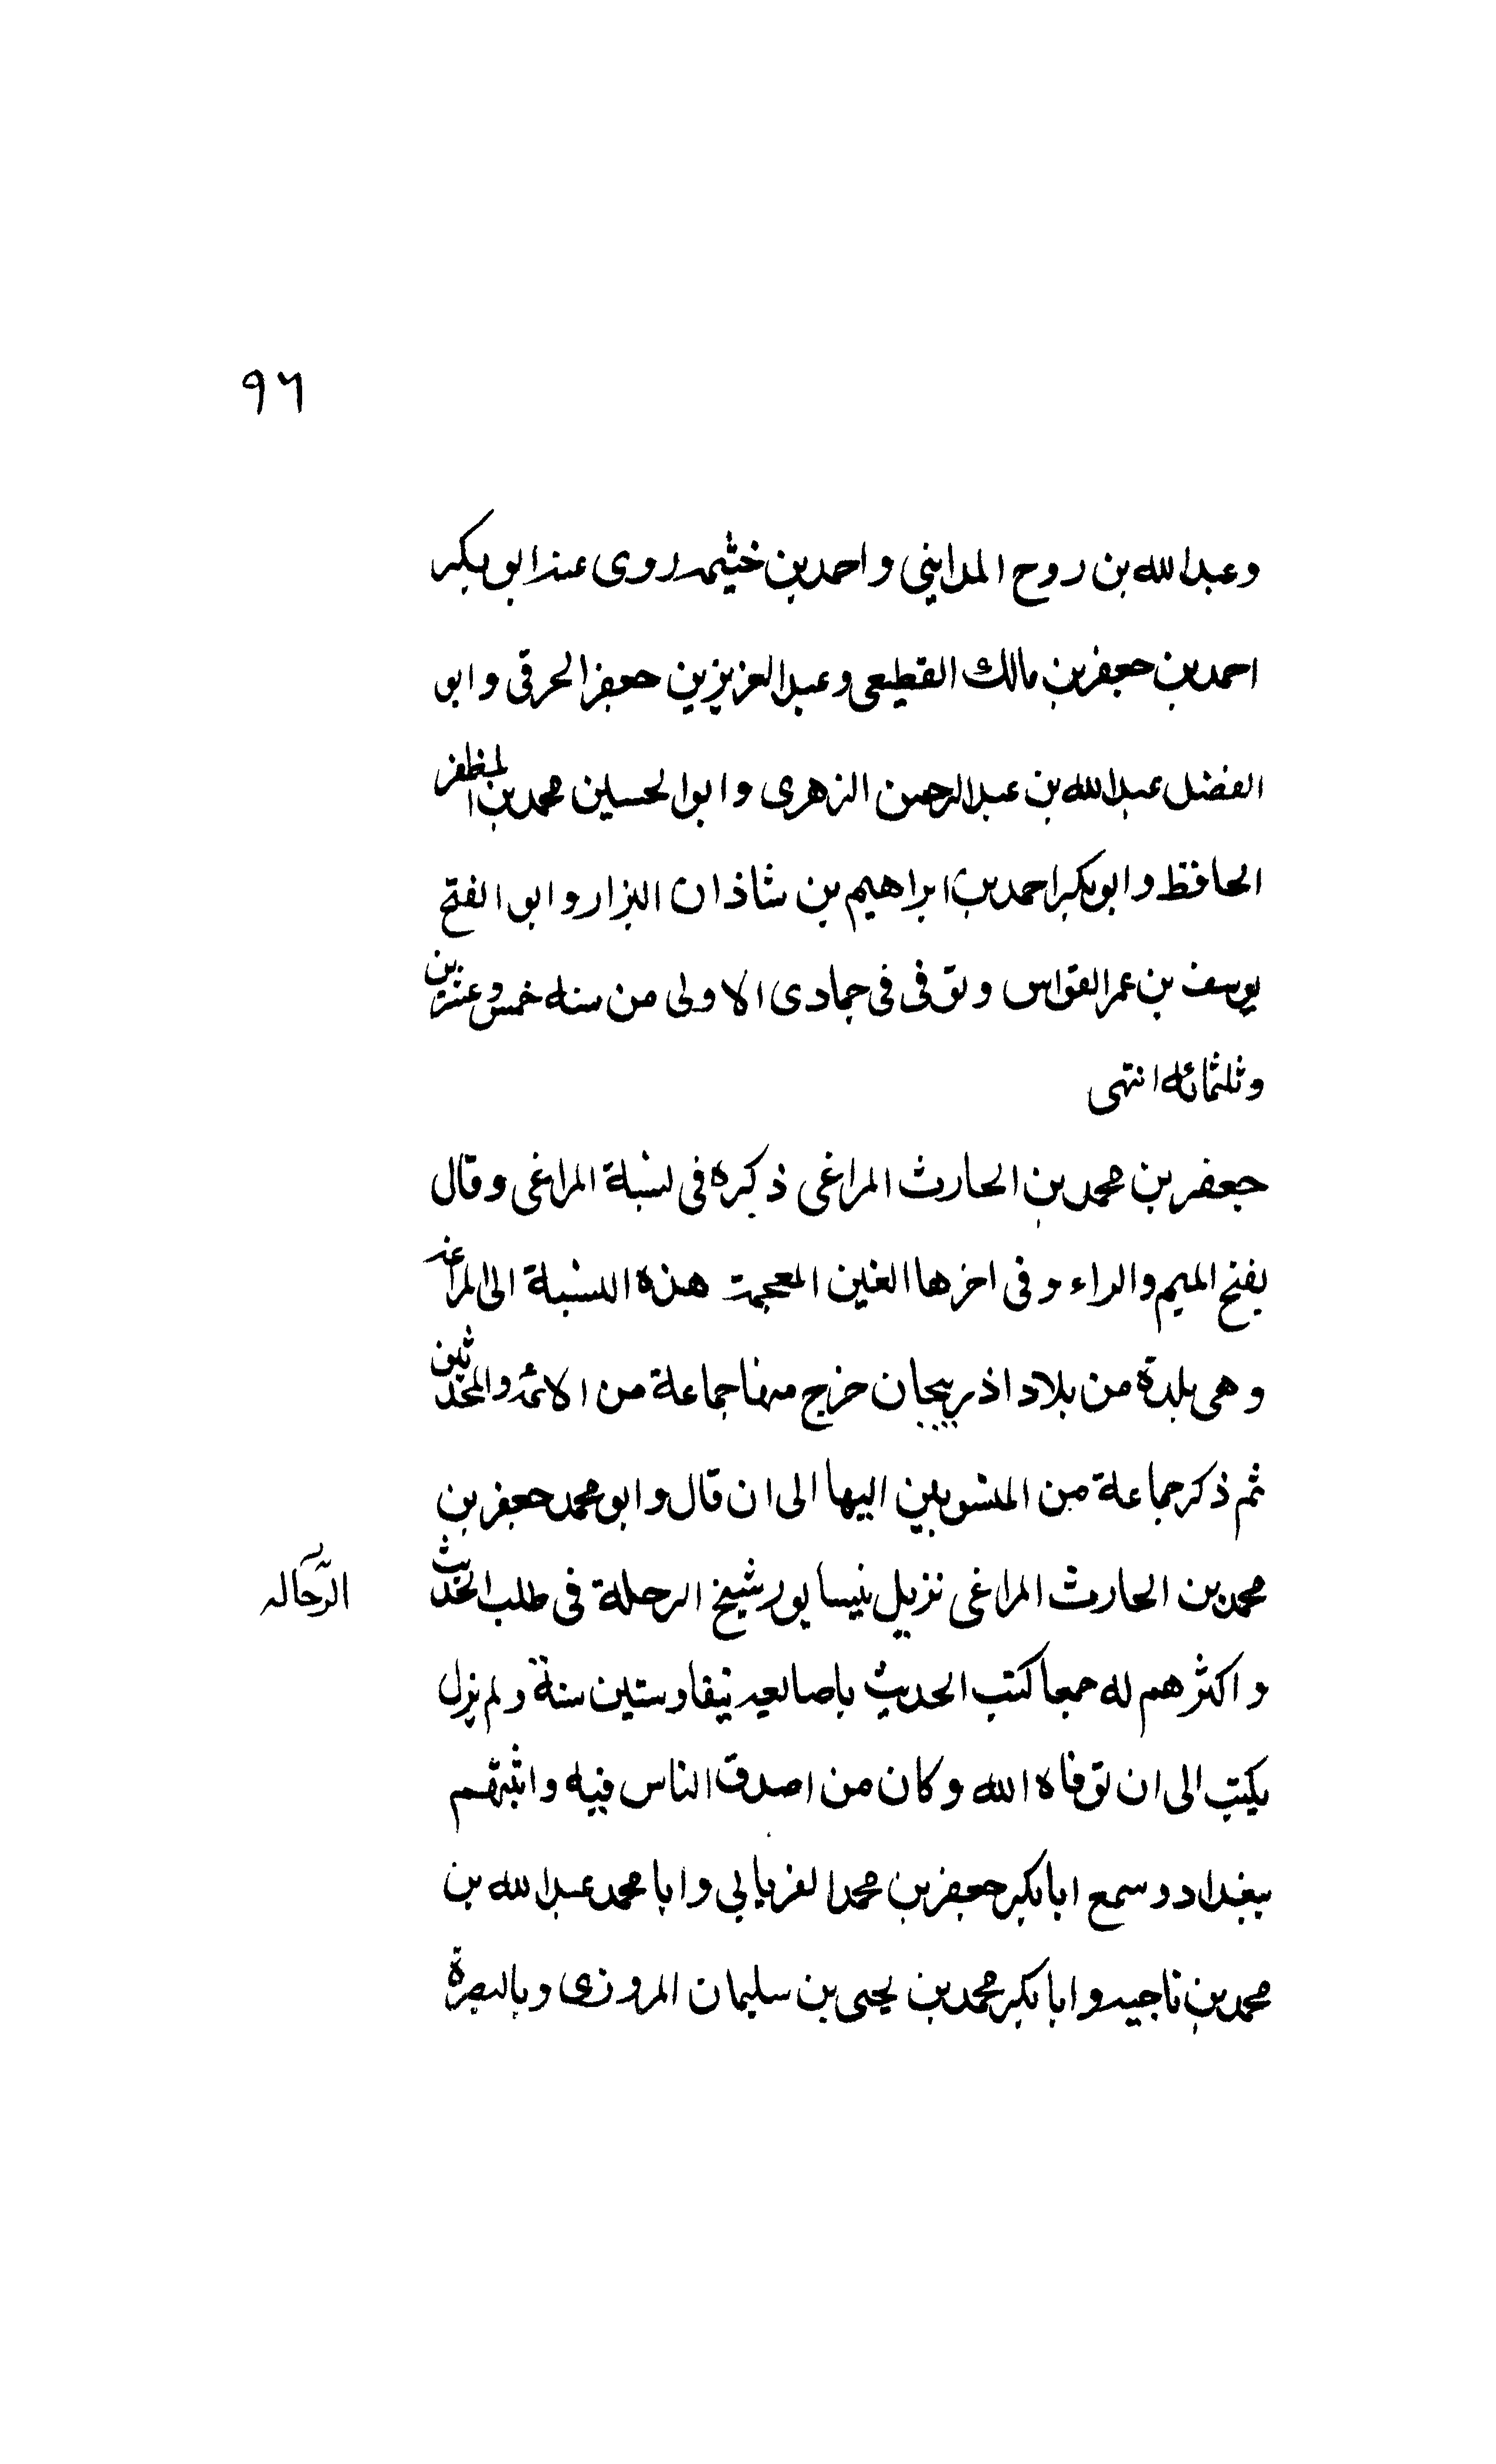 ٩٦
وعبدالله بن روح المدايني واحمد بن خثيمه روى عنه ابو بكر
احمد بن جعفر بن مالك القطيعى وعبد العزيز بن جعفر الحرقى وابو
الفضل عبدالله بن عبدالرحمن الزهرى وابوالحسين محمد بن المظفر
الحافظ وابوبكر احمد بن ابراهيم بن شاذان البزار وابو الفتح
يوسف بن عمر القواس وتوفى فى جمادى الاولى من سنه خمس وعشرين
وثلثمائه انتهى
جعفر بن محمد بن الحارث المراغى ذكره فى نسبة المراغى وقال
بفتح الميم والراء وفى اخرها الغين المعجمة هذه النسبة الى المراغه
وهى بلدة من بلاد اذربيجان خرج منها جماعة من الائمه والمحدثين
ثم ذكر جماعة من المنسوبين اليها الى ان قال وابو محمد جعفر بن
محمد بن الحارث المراغى نزيل نيسابور شيخ الرحلة فى طلب الحديث
الرحاله
واكثرهم له جمعا كتب الحديث باصابعه نيفا وستين سنة ولم يزل
يكتب الى ان توفاه الله وكان من اصدق الناس فيه واثبتهم
ببغداد وسمع ابابكر جعفر بن محمد الفريابي وابا محمد عبدالله بن
محمد بن ناجيه وابابكر محمد بن يحيى بن سليمان المروزى وبالبصرة